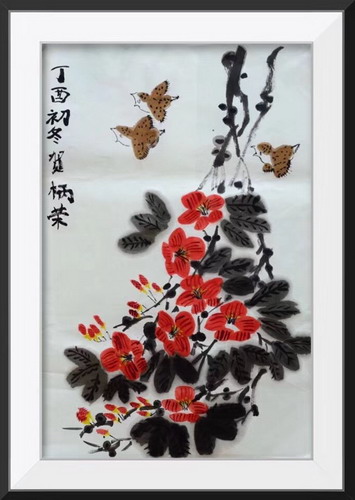 丁酉初冬贺柄荣